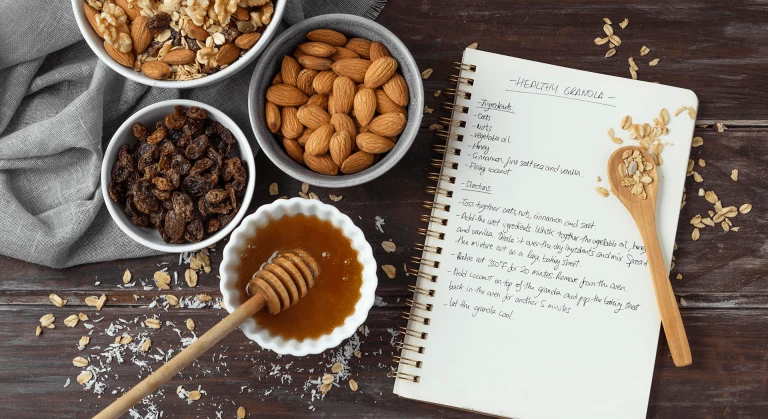 - HEALTHY GRANOLA -
- Ingredients:
- Oats
- Nuts
- Vegetable oil
- Honey
- Cinnamon, fine salt and vanilla
- Flaky coconut
- Directions:
- Toss together oats, nuts, cinnamon and salt
- Add the wet ingredients. Whisk together the vegetable oil, honey
and vanilla. Drizzle it over the dry ingredients and mix. Spread
the mixture out on a large baking sheet.
- Bake at 350°F for 20 minutes. Remove from the oven.
- Add coconut on top of the granola and pop the baking sheet
back in the oven for another 5 minutes
- Let the granola cool.